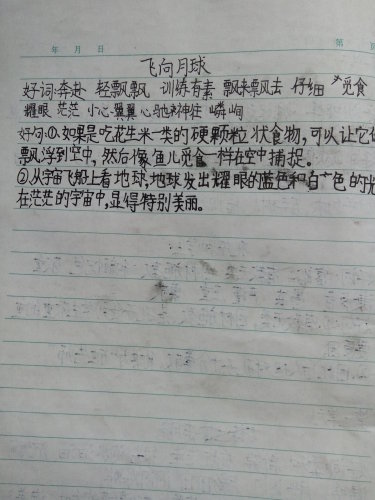 年 月 日 第 页
飞向月球
好词:奔赴 轻飘飘 训练有素 飘来飘去 仔细 觅食
耀眼 茫茫 小心翼翼 心驰神往 嶙峋
好句:①.如果是吃花生米一类的硬颗粒状食物,可以让它们
飘浮到空中,然后像鱼儿觅食一样在空中捕捉。
②.从宇宙飞船上看地球,地球发出耀眼的蓝色和白色的光
在茫茫的宇宙中,显得特别美丽。